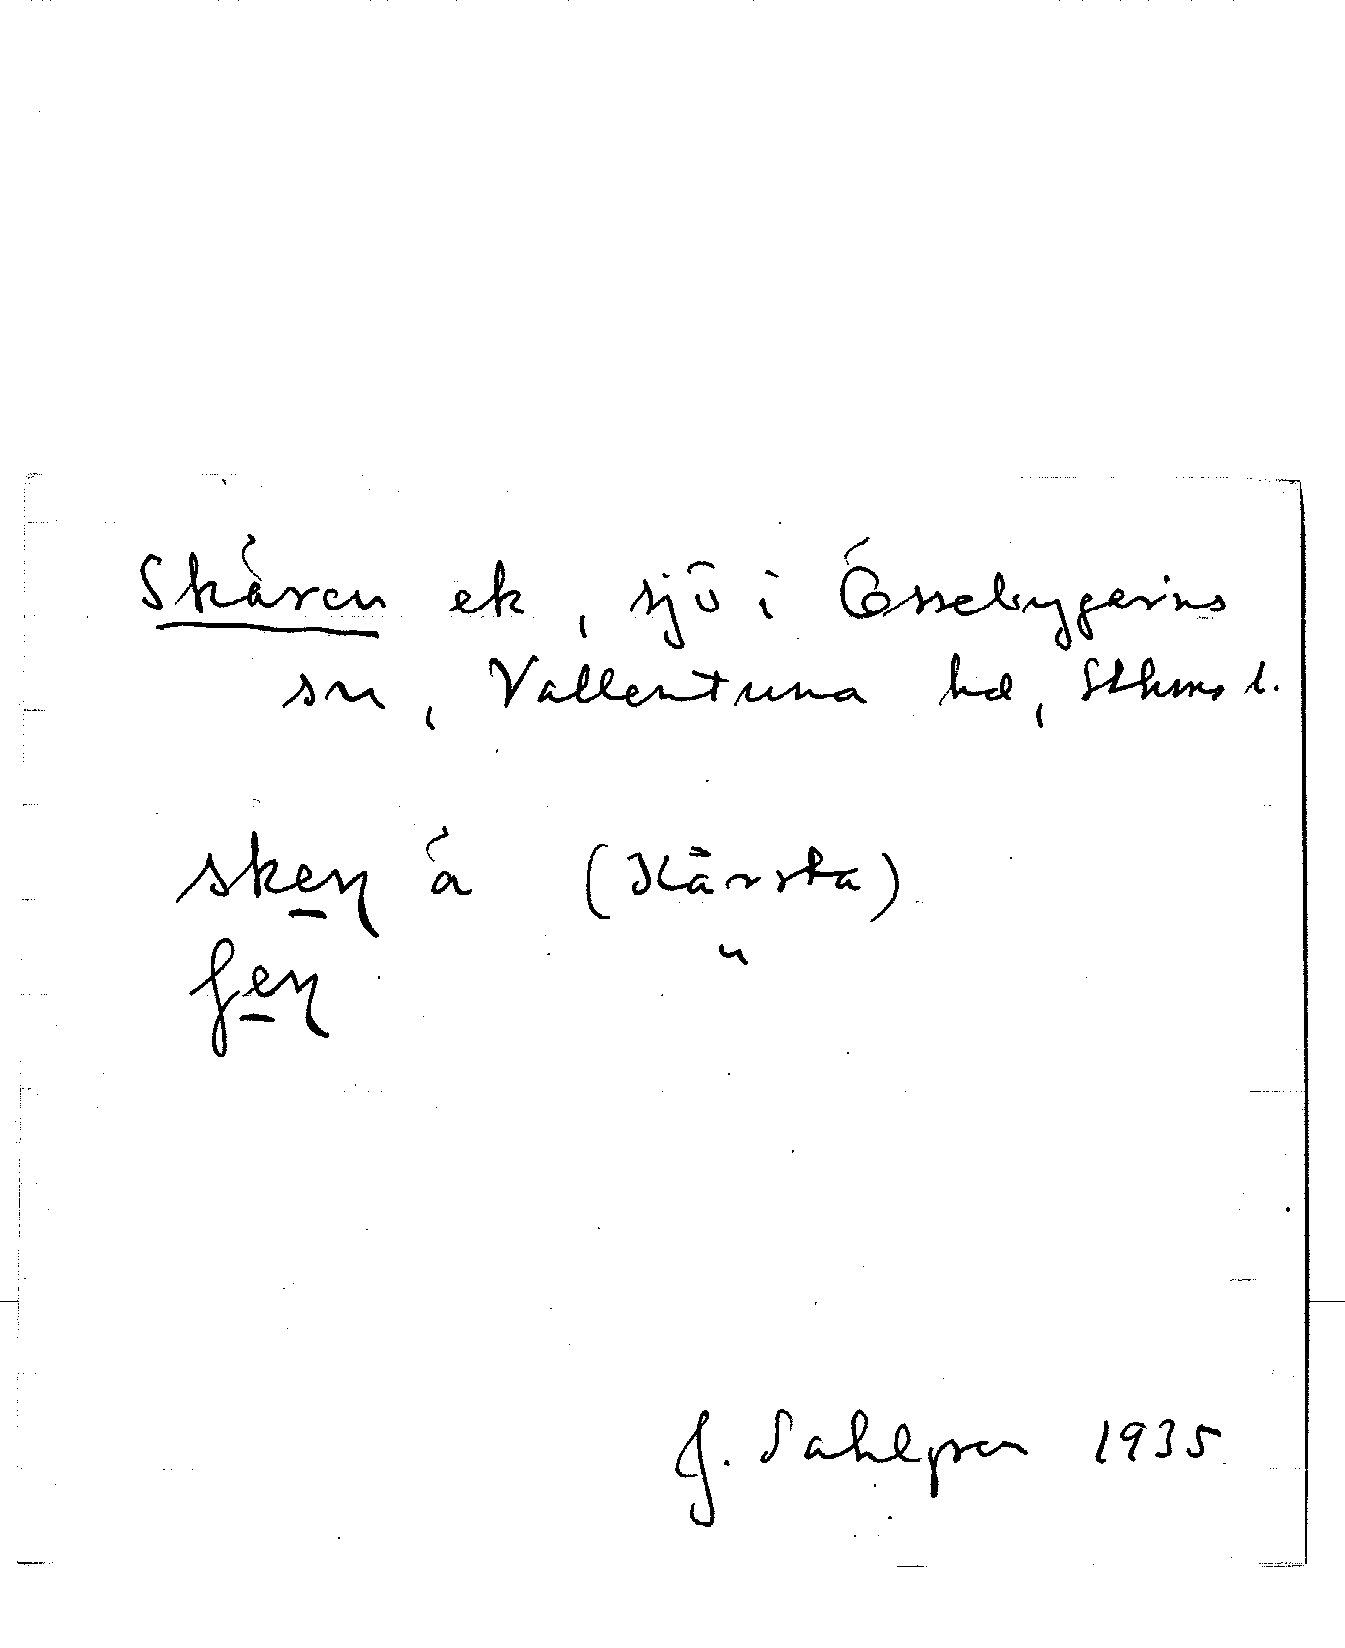 Skären ek, sjö i Össebygarns
sn, Vallentuna hd, Sthms l.
sken à (Kårsta)
fen "
J. Sahlgren 1935